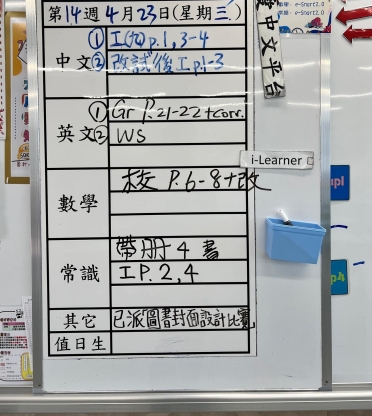 第14週4月23日(星期三)
中文
① I(九)p.1,3-4
② 改試後工p.1-3
英文
① Gr P.21-22+corr.
② WS
數學
校 P.6-8+改
常識
帶冊4書
工P.2,4
其它
已派圖書封面設計比賽
值日生
i-Learner
中文平台
e-Smart2.0